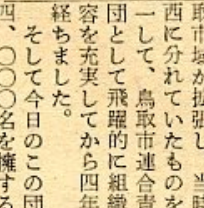 取市域が拡張し、当時
西に分れていたものを
一して、鳥取市連合青
団として飛躍的に組織
容を充実してから四年
経ちました。
そして今日のこの団
四、〇〇〇名を擁する